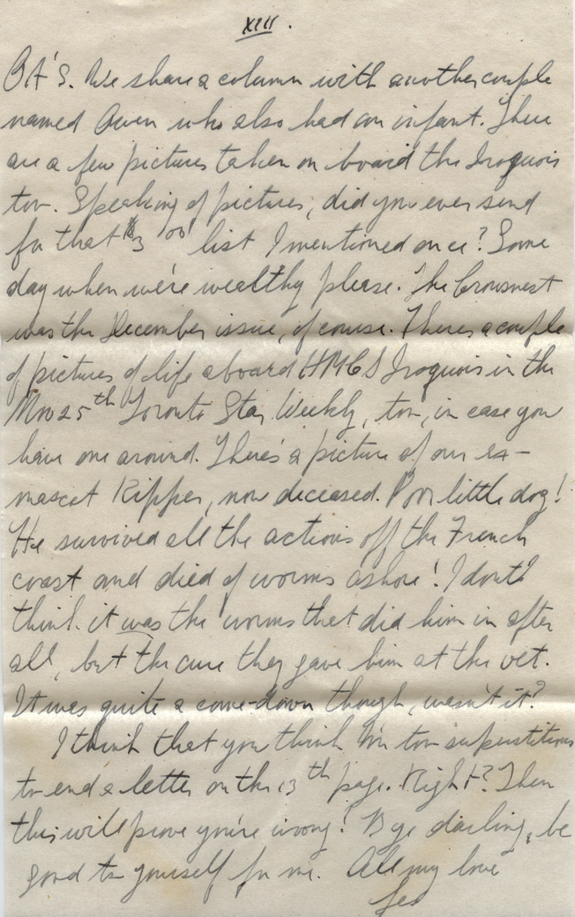 XIII.
OA's. We share a column with another couple
named Owen who also had an infant. There
are a few pictures taken on board the Iroquois
too. Speaking of pictures, did you ever send
for that $3 00 list I mentioned once? Some
day when we're wealthy please. The Crowsnest
was the December issue, of course. There's a couple
of pictures of life aboard HMCS Iroquois in the
Nov 25th Toronto Star Weekly, too, in case you
have one around. There's a picture of our ex-
mascot Ripper, now deceased. Poor little dog!
He survived all the actions off the French
coast and died of worms ashore! I don't
think it was the worms that did him in after
all, but the cure they gave him at the vet.
It was quite a come-down though, wasn't it?
I think that you think I'm too superstitious
to end a letter on the 13th page. Right? Then
this will prove you're wrong! Bye darling, be
good to yourself for me. All my love